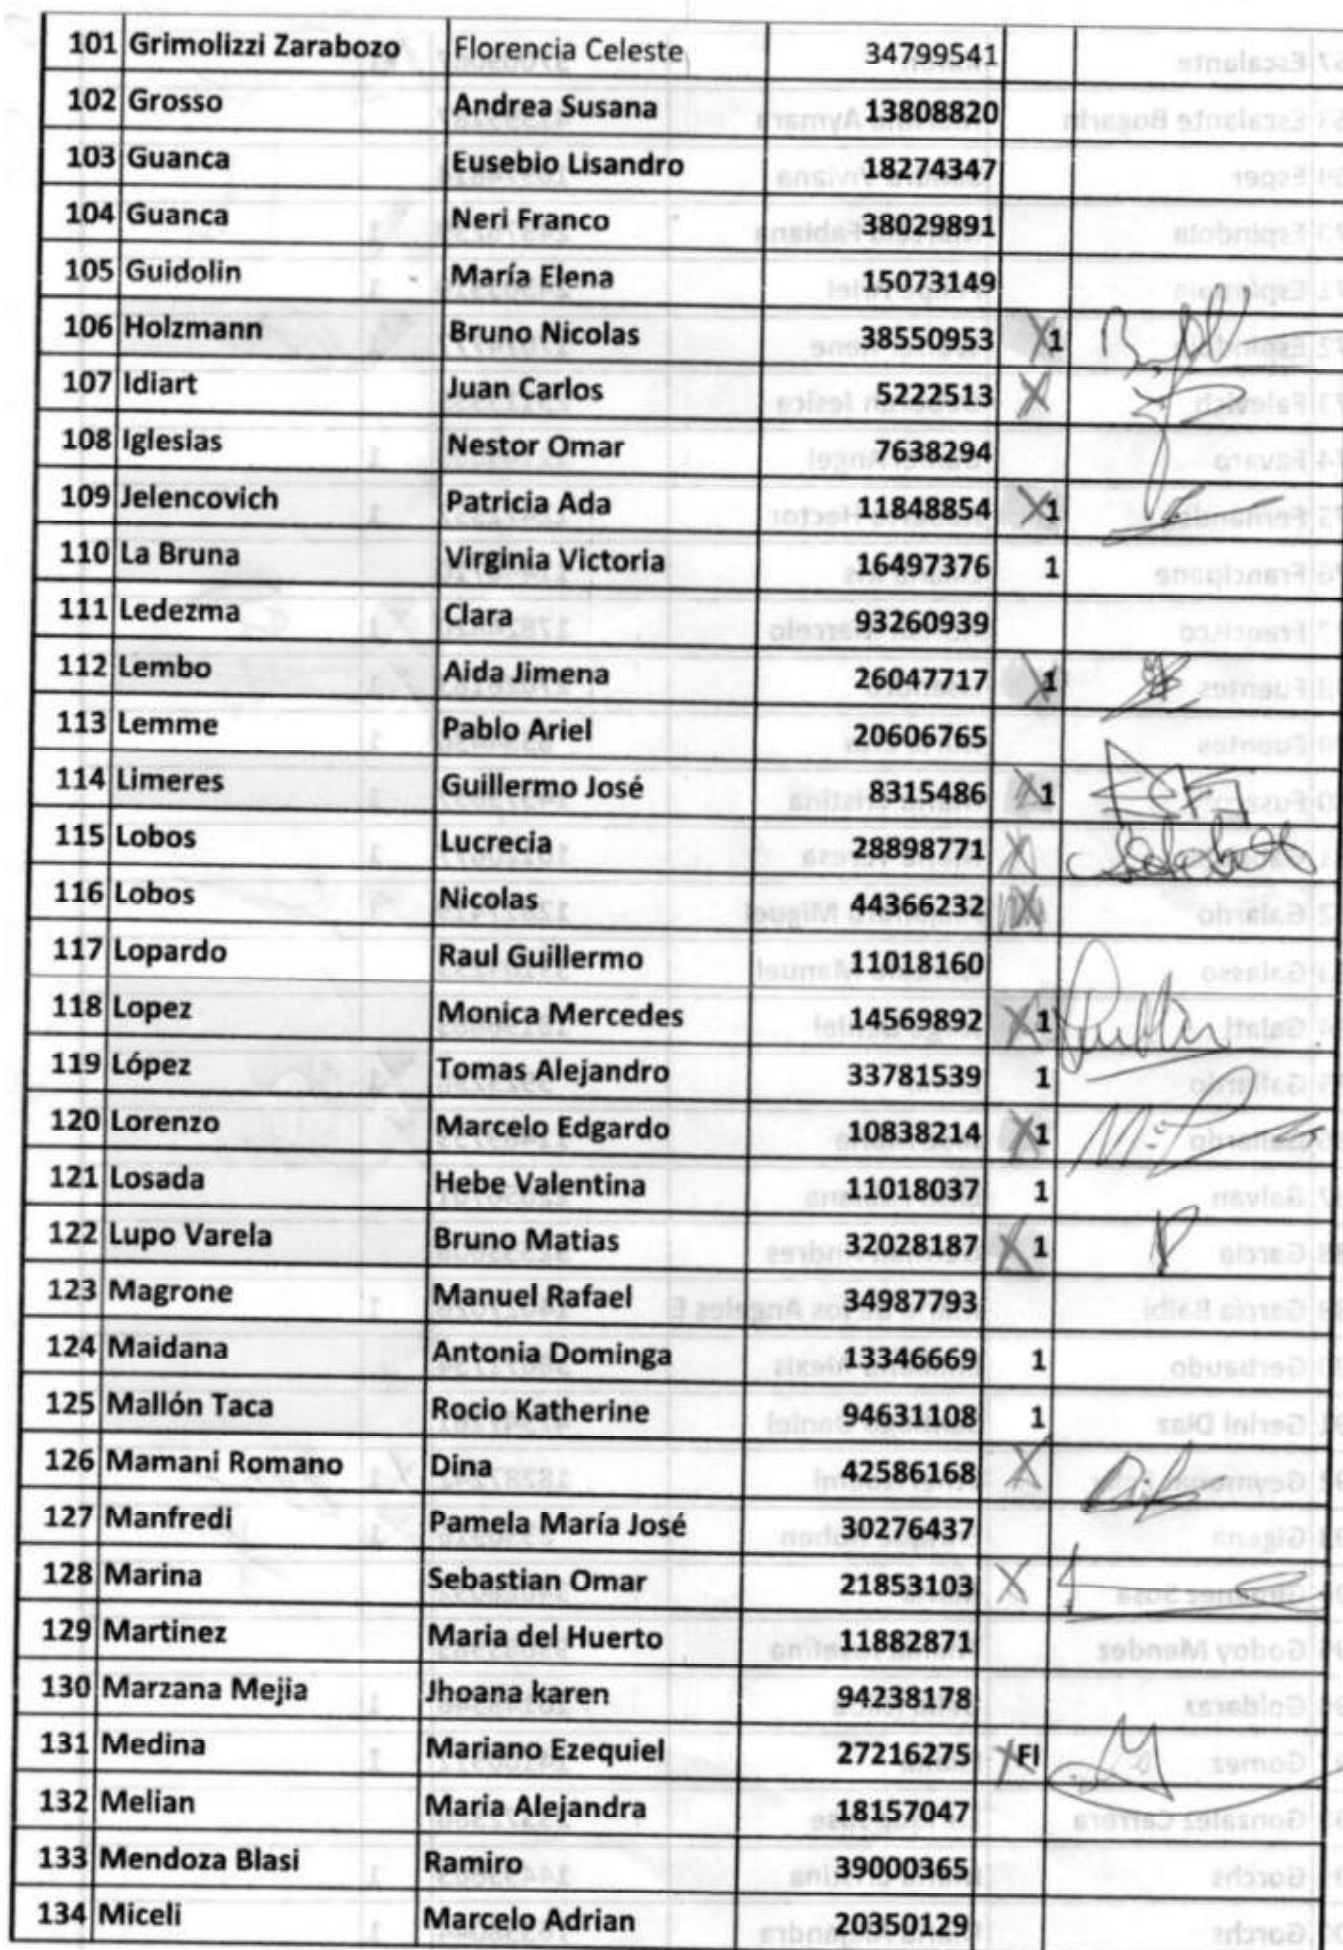 101 Grimolizzi Zarabozo Florencia Celeste 34799541
102 Grosso Andrea Susana 13808820
103 Guanca Eusebio Lisandro 18274347
104 Guanca Neri Franco 38029891
105 Guidolin María Elena 15073149
106 Holzmann Bruno Nicolas 38550953 X 1
107 Idiart Juan Carlos 5222513 X
108 Iglesias Nestor Omar 7638294
109 Jelencovich Patricia Ada 11848854 X 1
110 La Bruna Virginia Victoria 16497376 1
111 Ledezma Clara 93260939
112 Lembo Aida Jimena 26047717 X 1
113 Lemme Pablo Ariel 20606765
114 Limeres Guillermo José 8315486 X 1
115 Lobos Lucrecia 28898771 X
116 Lobos Nicolas 44366232 X
117 Lopardo Raul Guillermo 11018160
118 Lopez Monica Mercedes 14569892 X 1
119 López Tomas Alejandro 33781539 1
120 Lorenzo Marcelo Edgardo 10838214 X 1
121 Losada Hebe Valentina 11018037 1
122 Lupo Varela Bruno Matias 32028187 X 1
123 Magrone Manuel Rafael 34987793
124 Maidana Antonia Dominga 13346669 1
125 Mallón Taca Rocio Katherine 94631108 1
126 Mamani Romano Dina 42586168 X
127 Manfredi Pamela María José 30276437
128 Marina Sebastian Omar 21853103 X
129 Martinez Maria del Huerto 11882871
130 Marzana Mejia Jhoana karen 94238178
131 Medina Mariano Ezequiel 27216275 X FI
132 Melian Maria Alejandra 18157047
133 Mendoza Blasi Ramiro 39000365
134 Miceli Marcelo Adrian 20350129